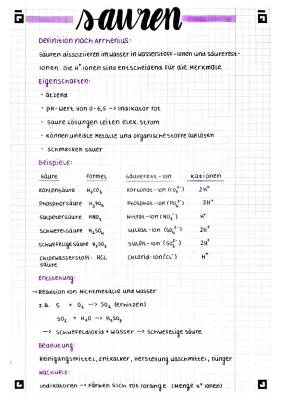 säuren
Definition nach Arrhenius:
säuren dissoziieren im wasser in wasserstoff-ionen und säurerest-
ionen. Die H⁺ ionen sind entscheidend für die Merkmale.
Eigenschaften:
- ätzend
- pH-Wert von 0-6,5 -> Indikator rot
- saure Lösungen leiten elek. Strom
- können unedle Metalle und organische Stoffe auflösen
- schmecken sauer
Beispiele:
säure Formel säurerest-ion Kationen
Kohlensäure H₂CO₃ Karbonat-ion (CO₃²⁻) 2H⁺
Phosphorsäure H₃PO₄ Phosphat-ion (PO₄³⁻) 3H⁺
Salpetersäure HNO₃ Nitrat-ion (NO₃⁻) H⁺
Schwefelsäure H₂SO₄ Sulfat-ion (SO₄²⁻) 2H⁺
Schwefelige säure H₂SO₃ Sulfit-ion (SO₃²⁻) 2H⁺
Chlorwasserstoff- HCL Chlorid-ion (Cl⁻) H⁺
säure
Entstehung:
-> Reaktion von Nichtmetalle und wasser
z.B. S + O₂ -> SO₂ (erhitzen)
SO₂ + H₂O -> H₂SO₃
-> Schwefeldioxid + wasser -> schwefelige säure
Bedeutung:
Reinigungsmittel, Entkalker, Herstellung waschmittel, Dünger
Nachweis:
Indikatoren -> färben sich rot/orange (Menge H⁺ ionen)